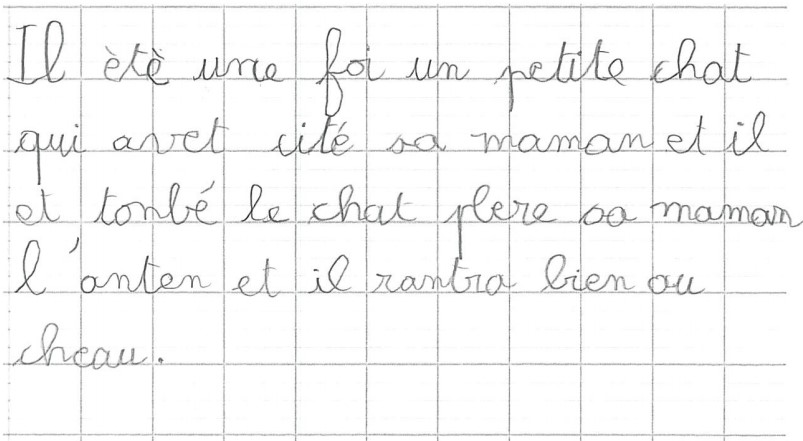 Il ètè une foi un petite chat
qui avet cité sa maman et il
et tonbé le chat plere sa maman
l'anten et il rantra bien au
cheau.